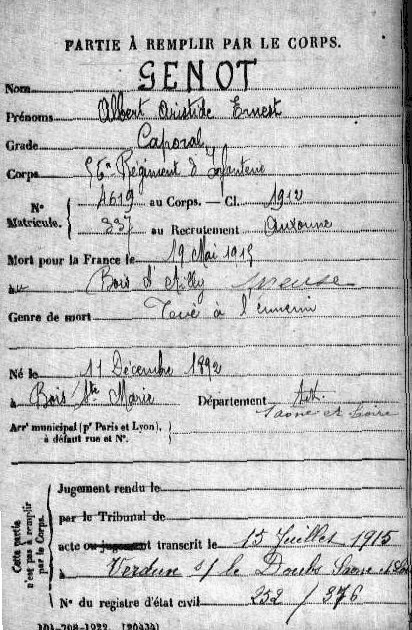 PARTIE À REMPLIR PAR LE CORPS.
Nom GENOT
Prénoms Albert Aristide Ernest
Grade Caporal
Corps 56e Régiment d'Infanterie
N° Matricule. { 4619 au Corps. — Cl. 1912
337 au Recrutement Auxonne
Mort pour la France le 19 Mai 1915
à Bois d'Ailly Meuse
Genre de mort Tué à l'ennemi
Né le 11 Décembre 1892
à Bois Ste Marie Département
Saone et Loire
Arrt municipal (pr Paris et Lyon), à défaut rue et N°.
Cette partie n'est pas à remplir par le Corps.
Jugement rendu le
par le Tribunal de
acte ou jugement transcrit le 15 Juillet 1915
à Verdun s/ le Doubs Saone et Loire
N° du registre d'état civil 252 / 376
101-708-1922. [20434]